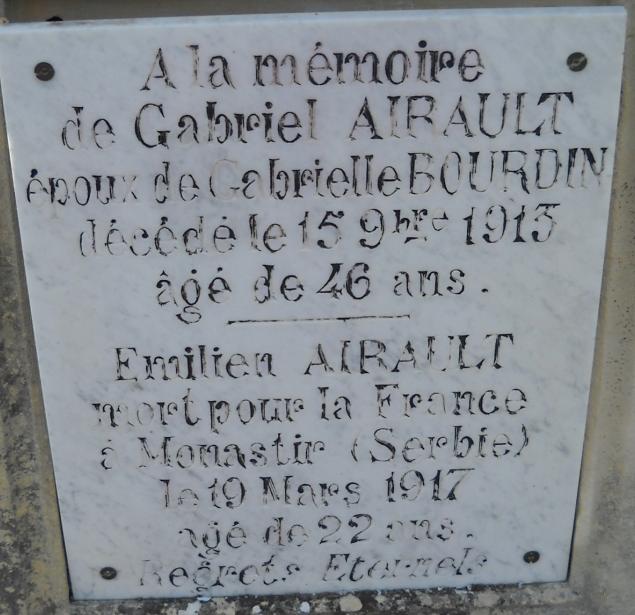 A la mémoire
de Gabriel AIRAULT
époux de Gabrielle BOURDIN
décédé le 15 9bre 1913
âgé de 46 ans.
Emilien AIRAULT
mort pour la France
à Monastir (Serbie)
le 19 Mars 1917
agé de 22 ans.
Regrets Eternels